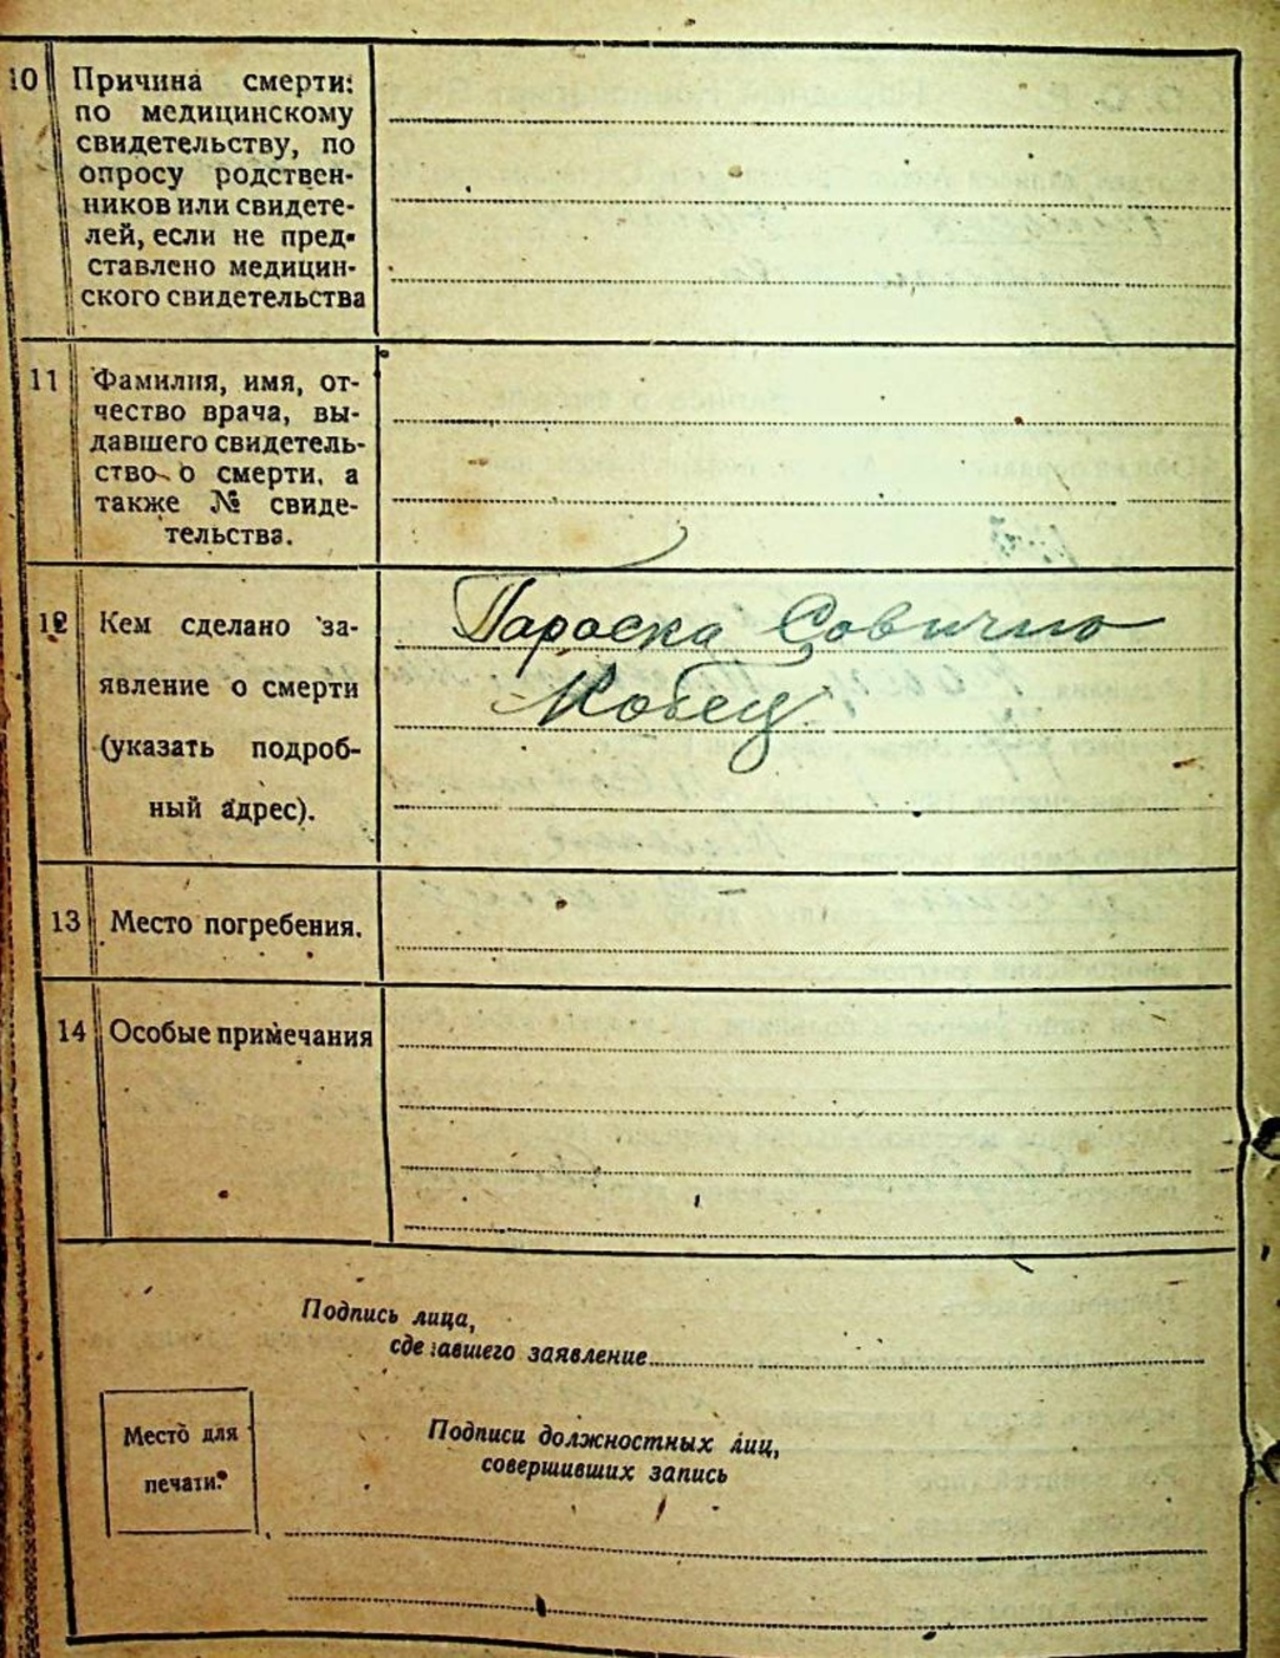 10 Причина смерти:
по медицинскому
свидетельству, по
опросу родствен-
ников или свидете-
лей, если не пред-
ставлено медицин-
ского свидетельства
11 Фамилия, имя, от-
чество врача, вы-
давшего свидетель-
ство о смерти, а
также № свиде-
тельства.
12 Кем сделано за-
явление о смерти
(указать подроб-
ный адрес).
Параска
13 Место погребения.
14 Особые примечания
Подпись лица,
сделавшего заявление
Место для
печати.
Подписи должностных лиц,
совершивших запись